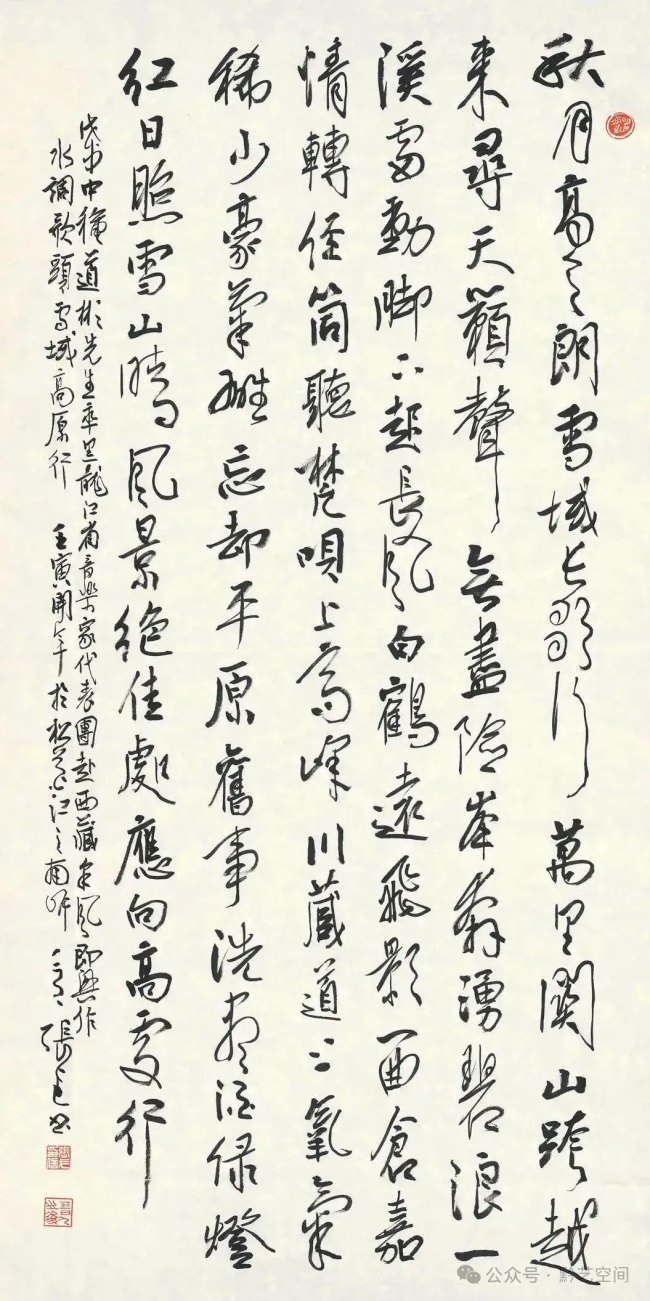 秋月高天朗雪域長歌行萬里關山跨越
來尋天籟聲無盡險峰奔湧碧浪一
溪雷動脚下起長風白鶴遠飛影一曲倉嘉
情轉經筒聽梵唄上高峰川藏道上氧氣
稀少豪氣雄忘却平原舊事洗盡酒绿燈
红日照雪山晴風景絕佳處應向高處行
戊戌中秋道彬先生率黑龍江省音樂家代表團赴西藏采風即興作
水調歌頭雪域高原行 壬寅開年於松花江之南岸 張書
公众号·黔艺空间